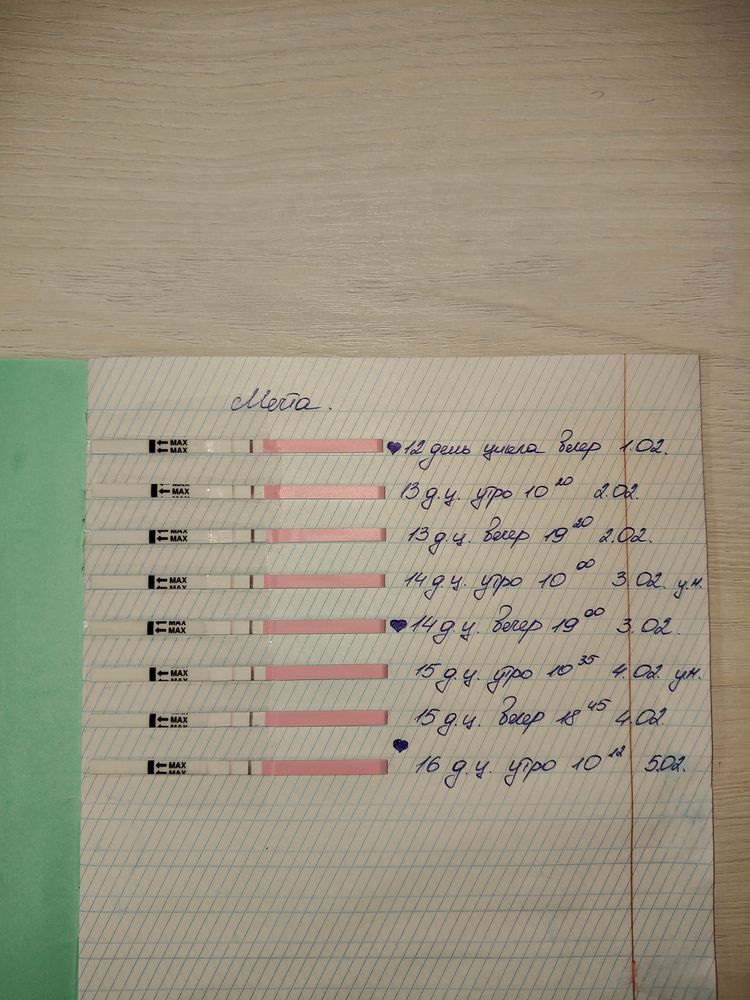 Мечта.
MAX MAX ♥ 12 день цикла вечер 1.02.
MAX 13 д.ц. утро 10 20 2.02.
MAX MAX 13 д.ц. вечер 19 20 2.02.
MAX MAX 14 д.ц. утро 10 00 3.02. у.н.
MAX MAX ♥ 14 д.ц. вечер 19 00 3.02.
MAX 15 д.ц. утро 10 35 4.02 у.н.
MAX MAX 15 д.ц. вечер 18 45 4.02
♥
MAX MAX 16 д.ц. утро 10 12 5.02.